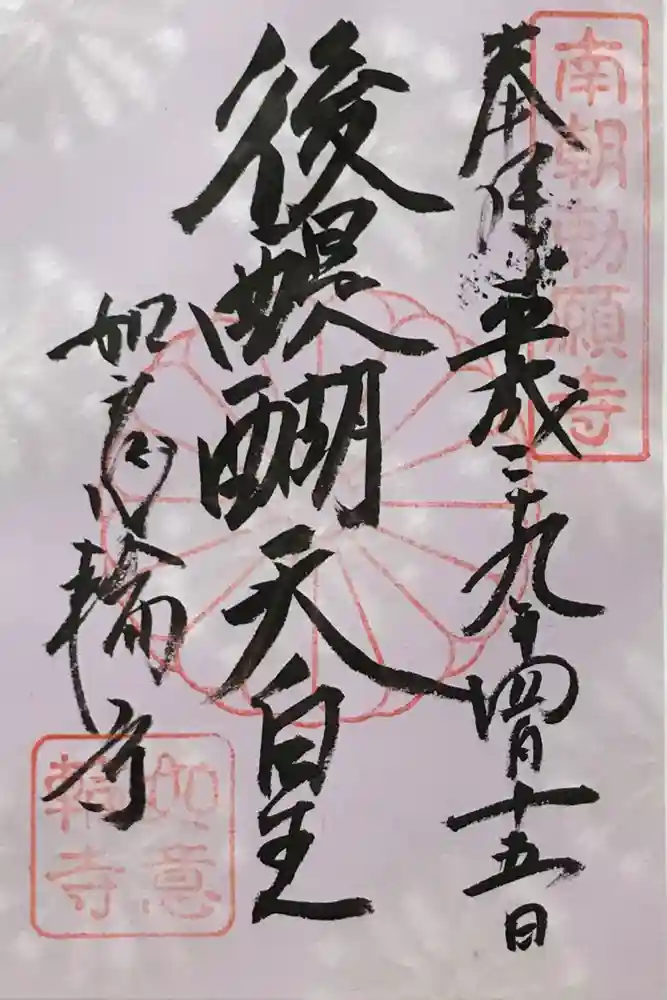 南朝勅願寺
奉拝 平成二十九年四月十五日
後醍醐天皇
如意輪寺
如意
輪寺